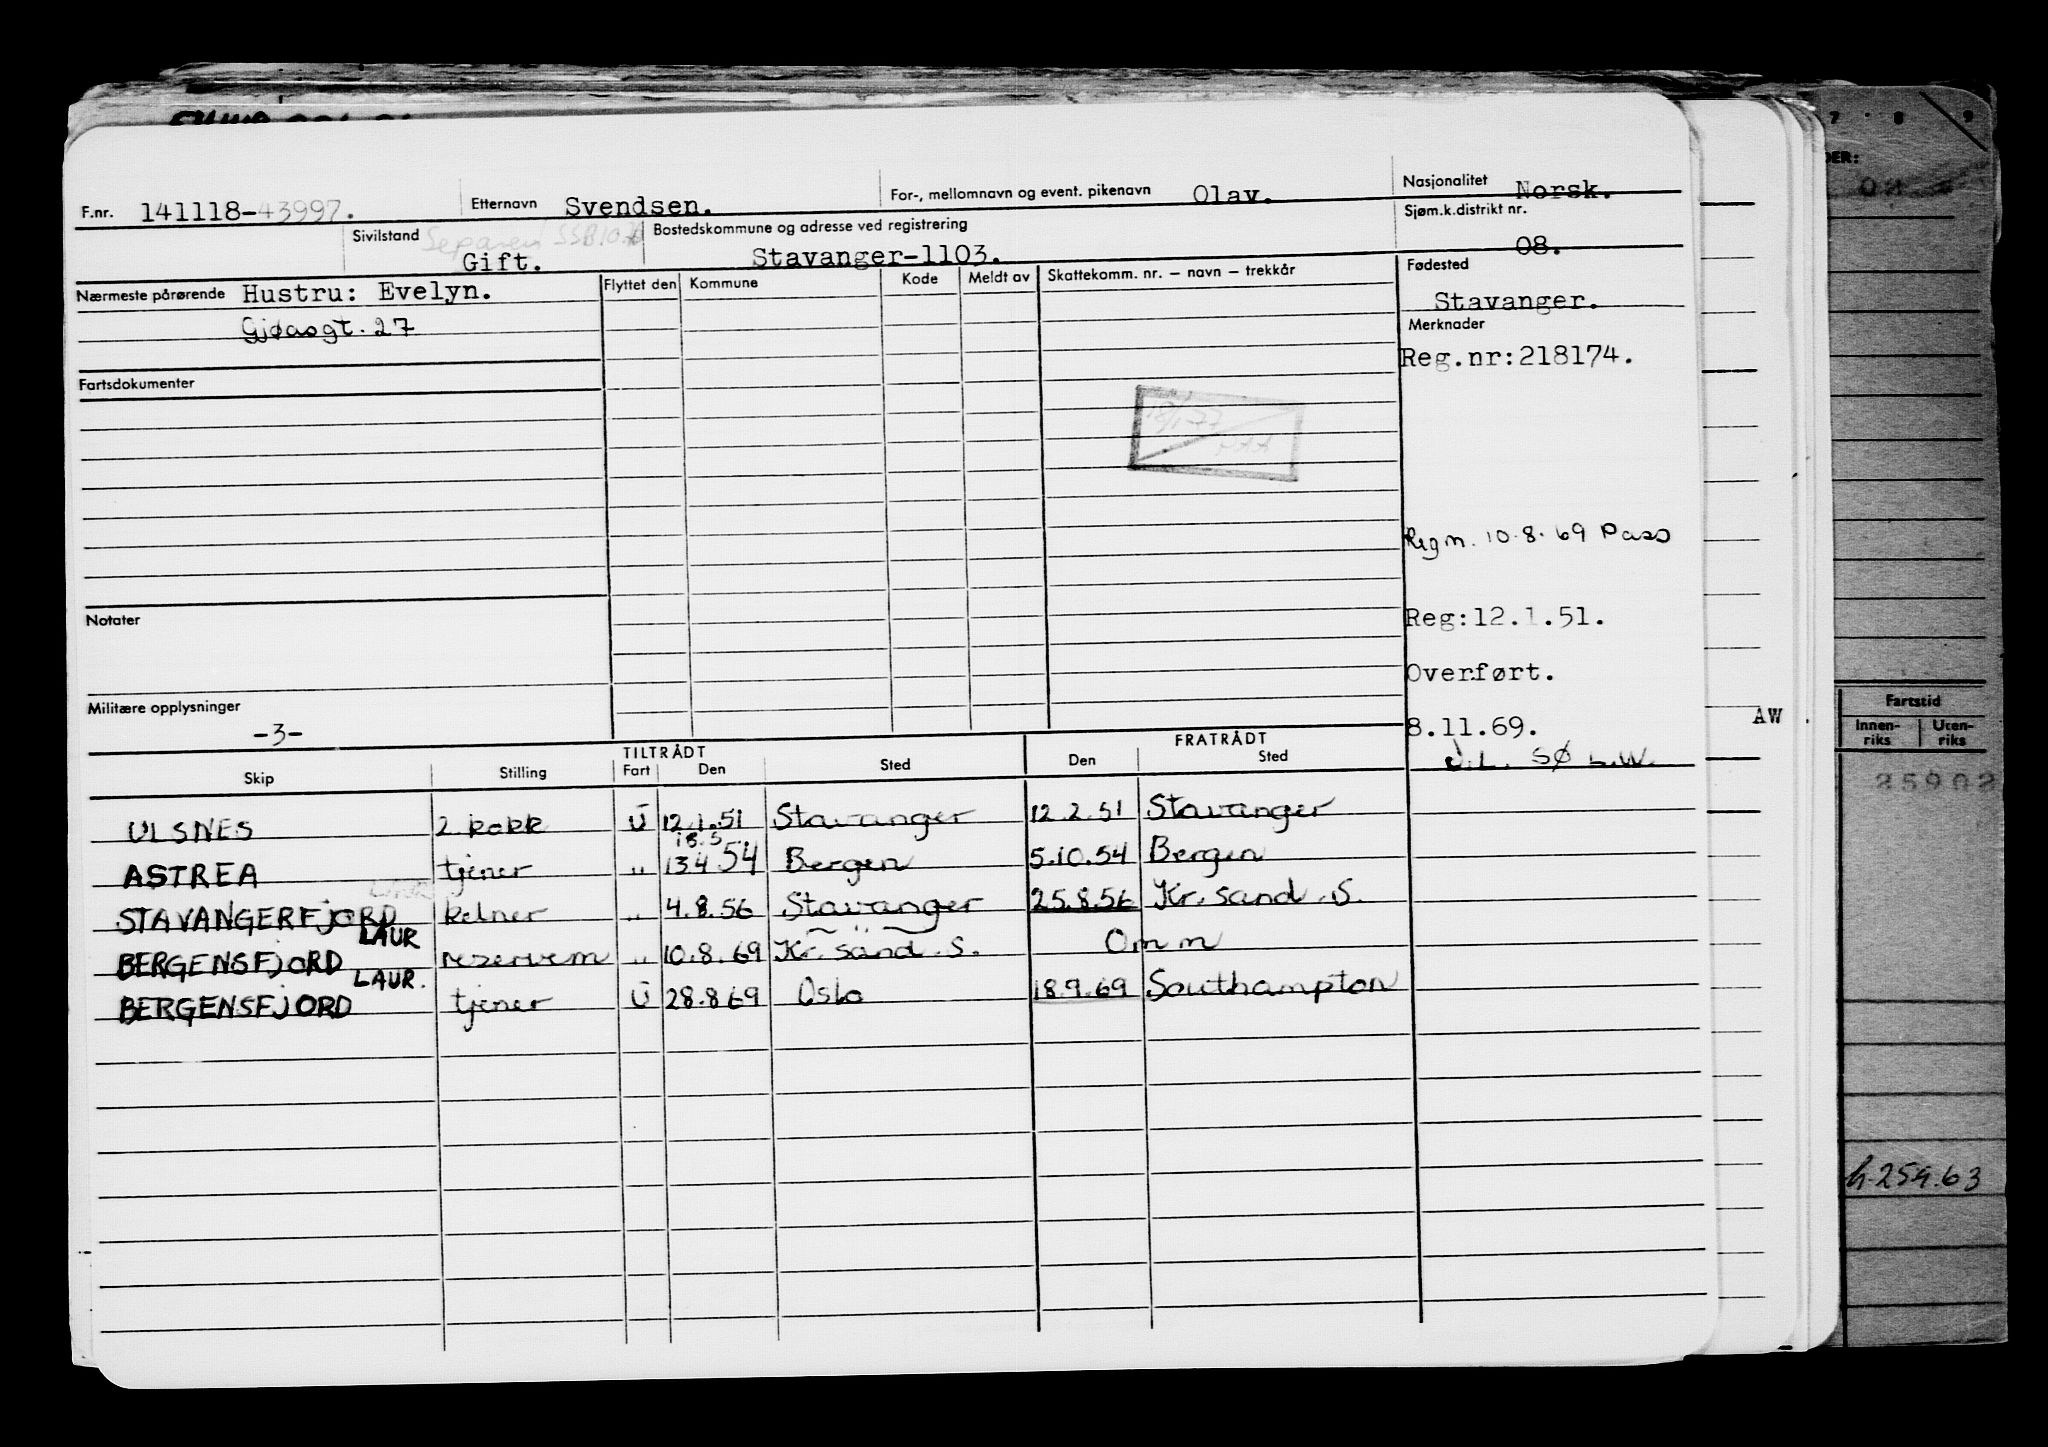 F.nr. 141118-43997.
Etternavn Svendsen.
For-, mellomnavn og event. pikenavn Olav.
Nasjonalitet Norsk.
Sivilstand Gift.
Bostedskommune og adresse ved registrering
Stavanger-1103.
Sjøm.k.distrikt nr.
08.
Nærmeste pårørende Hustru: Evelyn.
Gjøasgt. 27
Flyttet den Kommune Kode Meldt av Skattekomm. nr. – navn – trekkår
Fødested
Stavanger.
Merknader
Reg.nr:218174.
Fartsdokumenter
Regm. 10.8.69 Pass
Notater
Reg:12.1.51.
Overført.
Militære opplysninger
-3-
8.11.69.
J.L. SØ L.W.
TILTRÅDT FRATRÅDT
Skip Stilling Fart Den Sted Den Sted
ULSNES 2 kokk U 12.1.51 Stavanger 12.2.51 Stavanger
18.5
ASTREA tjener " 13.4 54 Bergen 5.10.54 Bergen
STAVANGERFJORD kelner " 4.8.56 Stavanger 25.8.56 Kr.sand .S.
LAUR
BERGENSFJORD reservem " 10.8.69 Kr.sand .S. Omm
LAUR.
BERGENSFJORD tjener U 28.8 69 Oslo 18.9.69 Southampton
AW
7 8 9
DER:
Fartstid
Innen-riks Uten-riks
h.254.63